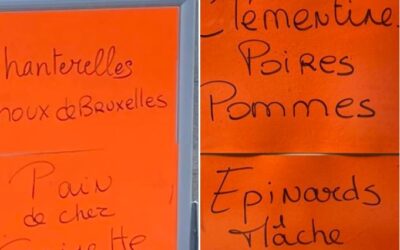 hanterelles
houx de Bruxelles
Pain
de chez
Clémentine
Poires
Pommes
Epinards
Mâche